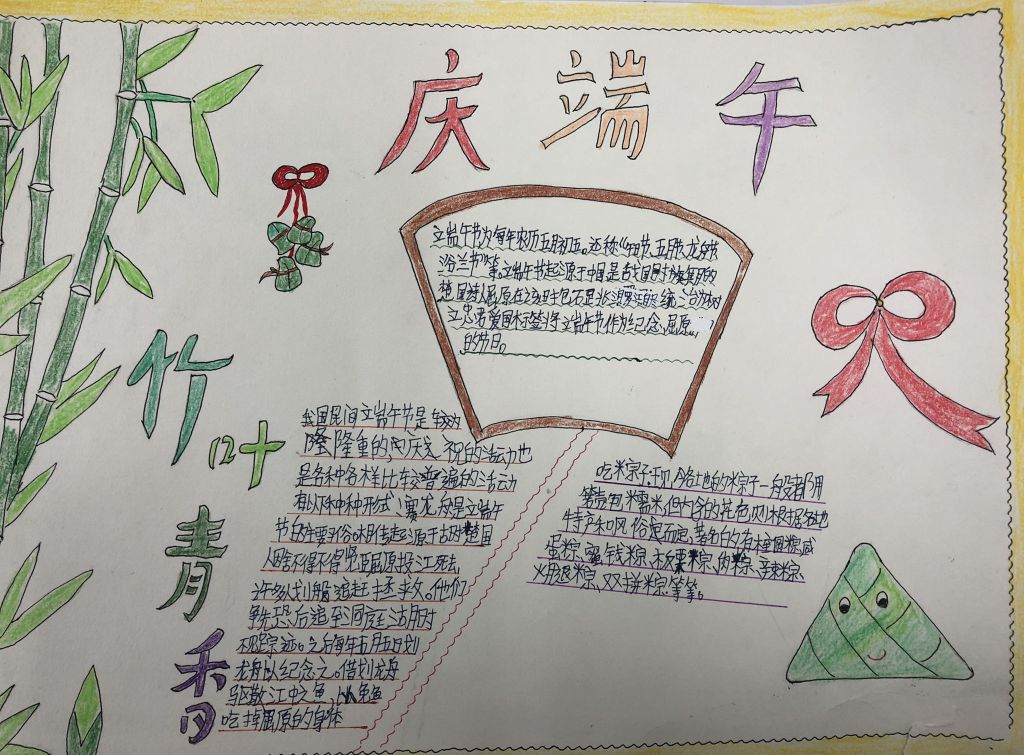 庆端午
端午节为每年农历五月初五。还称"午日节、五月节、龙舟节
浴兰节"等。端午节起源于中国是古
楚国诗人屈原在该
忠君爱国标签将端午节作为纪念屈原
的节日。
竹叶青香
我国民间端午节是较为
隆隆重的,庆祝的活动也
是各种各样比较普遍的活动
有以种种形式:赛龙舟是端午
节的主要习俗。相传起源于古时楚国
人因舍不得贤臣屈原投江死去,
许多人划船追赶拯救。他们
争先恐后追至洞庭湖时
不见踪迹。之后每年五月五日划
龙舟以纪念之。借划龙舟
驱散江中之鱼,以免鱼
吃掉屈原的身体
吃粽子:现今各地的粽子一般都用
箬壳包糯米,但内含的花色则根据各地
特产和风俗而定,著名的有桂圆粽、咸
蛋粽、蜜钱粽、板栗粽、肉粽、辣粽、
火腿粽、双拼粽.等等。